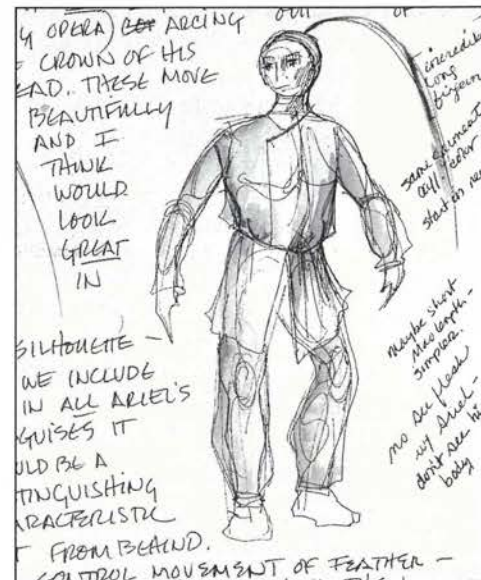 OUT OF
G OPERA) ARCING
CROWN OF HIS
EAD. THESE MOVE
BEAUTIFULLY
AND I
THINK
WOULD
LOOK
GREAT
IN
SILHOUETTE –
WE INCLUDE
IN ALL ARIEL'S
GUISES IT
ULD BE A
TINGUISHING
ARACTERISTIC
FROM BEHIND.
CONTROL MOVEMENT OF FEATHER –
long
same
color
start on
maybe short
length –
simpler.
no see flesh
w/ Ariel –
don't see his
body